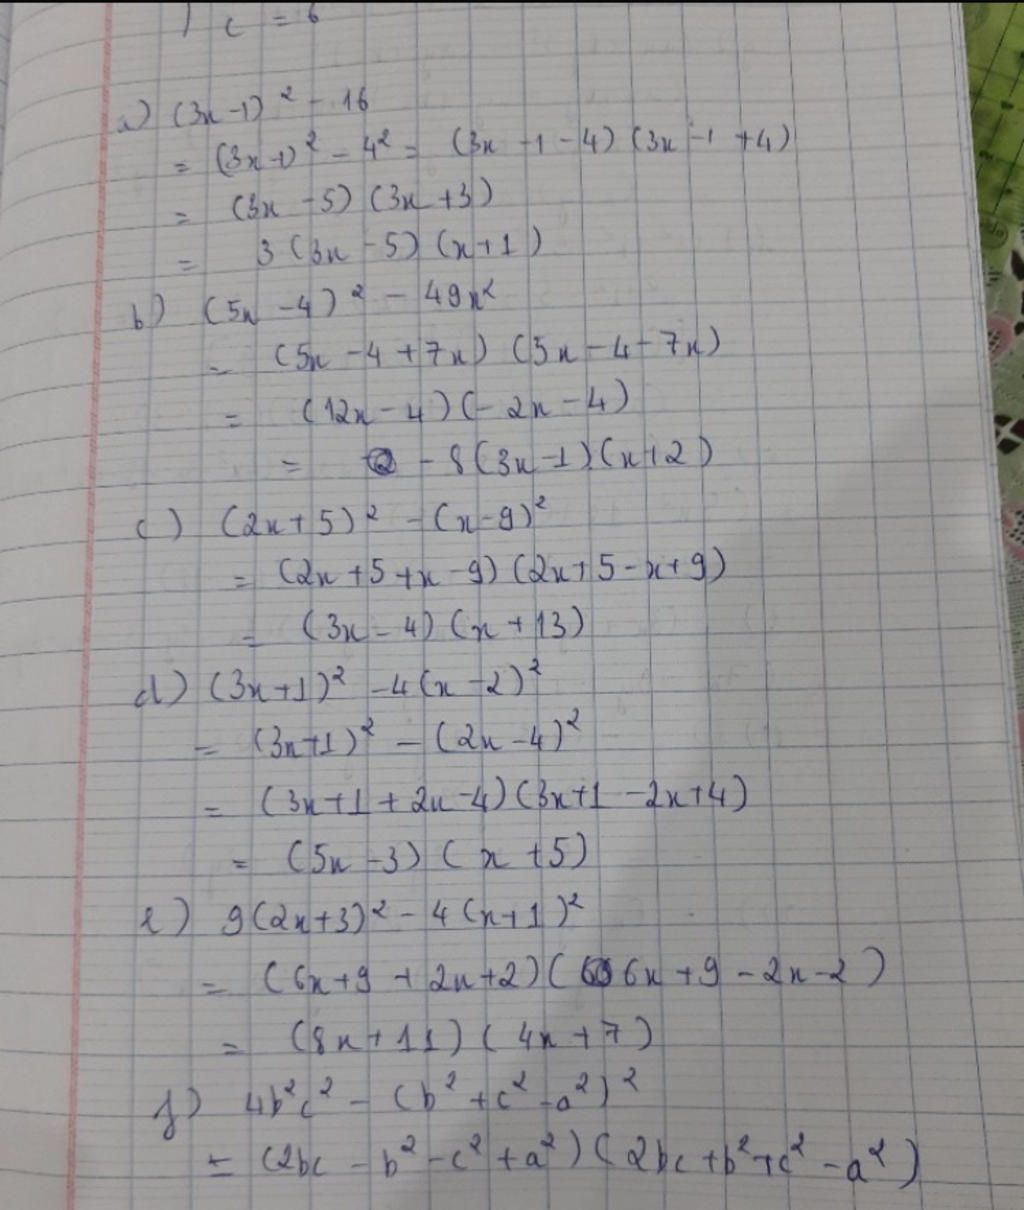 c = 6
a) (3x-1)² - 16
= (3x-1)² - 4² = (3x - 1 - 4) (3x - 1 + 4)
= (3x - 5) (3x + 3)
= 3 (3x - 5) (x + 1)
b) (5x - 4)² - 49x²
= (5x - 4 + 7x) (5x - 4 - 7x)
= (12x - 4) (-2x - 4)
= -8 (3x - 1) (x + 2)
c) (2x + 5)² - (x - 9)²
= (2x + 5 + x - 9) (2x + 5 - x + 9)
= (3x - 4) (x + 13)
d) (3x + 1)² - 4(x - 2)²
= (3x + 1)² - (2x - 4)²
= (3x + 1 + 2x - 4) (3x + 1 - 2x + 4)
= (5x - 3) (x + 5)
e) 9(2x + 3)² - 4(x + 1)²
= (6x + 9 + 2x + 2) (6x + 9 - 2x - 2)
= (8x + 11) (4x + 7)
f) 4b²c² - (b² + c² - a²)²
= (2bc - b² - c² + a²) (2bc + b² + c² - a²)